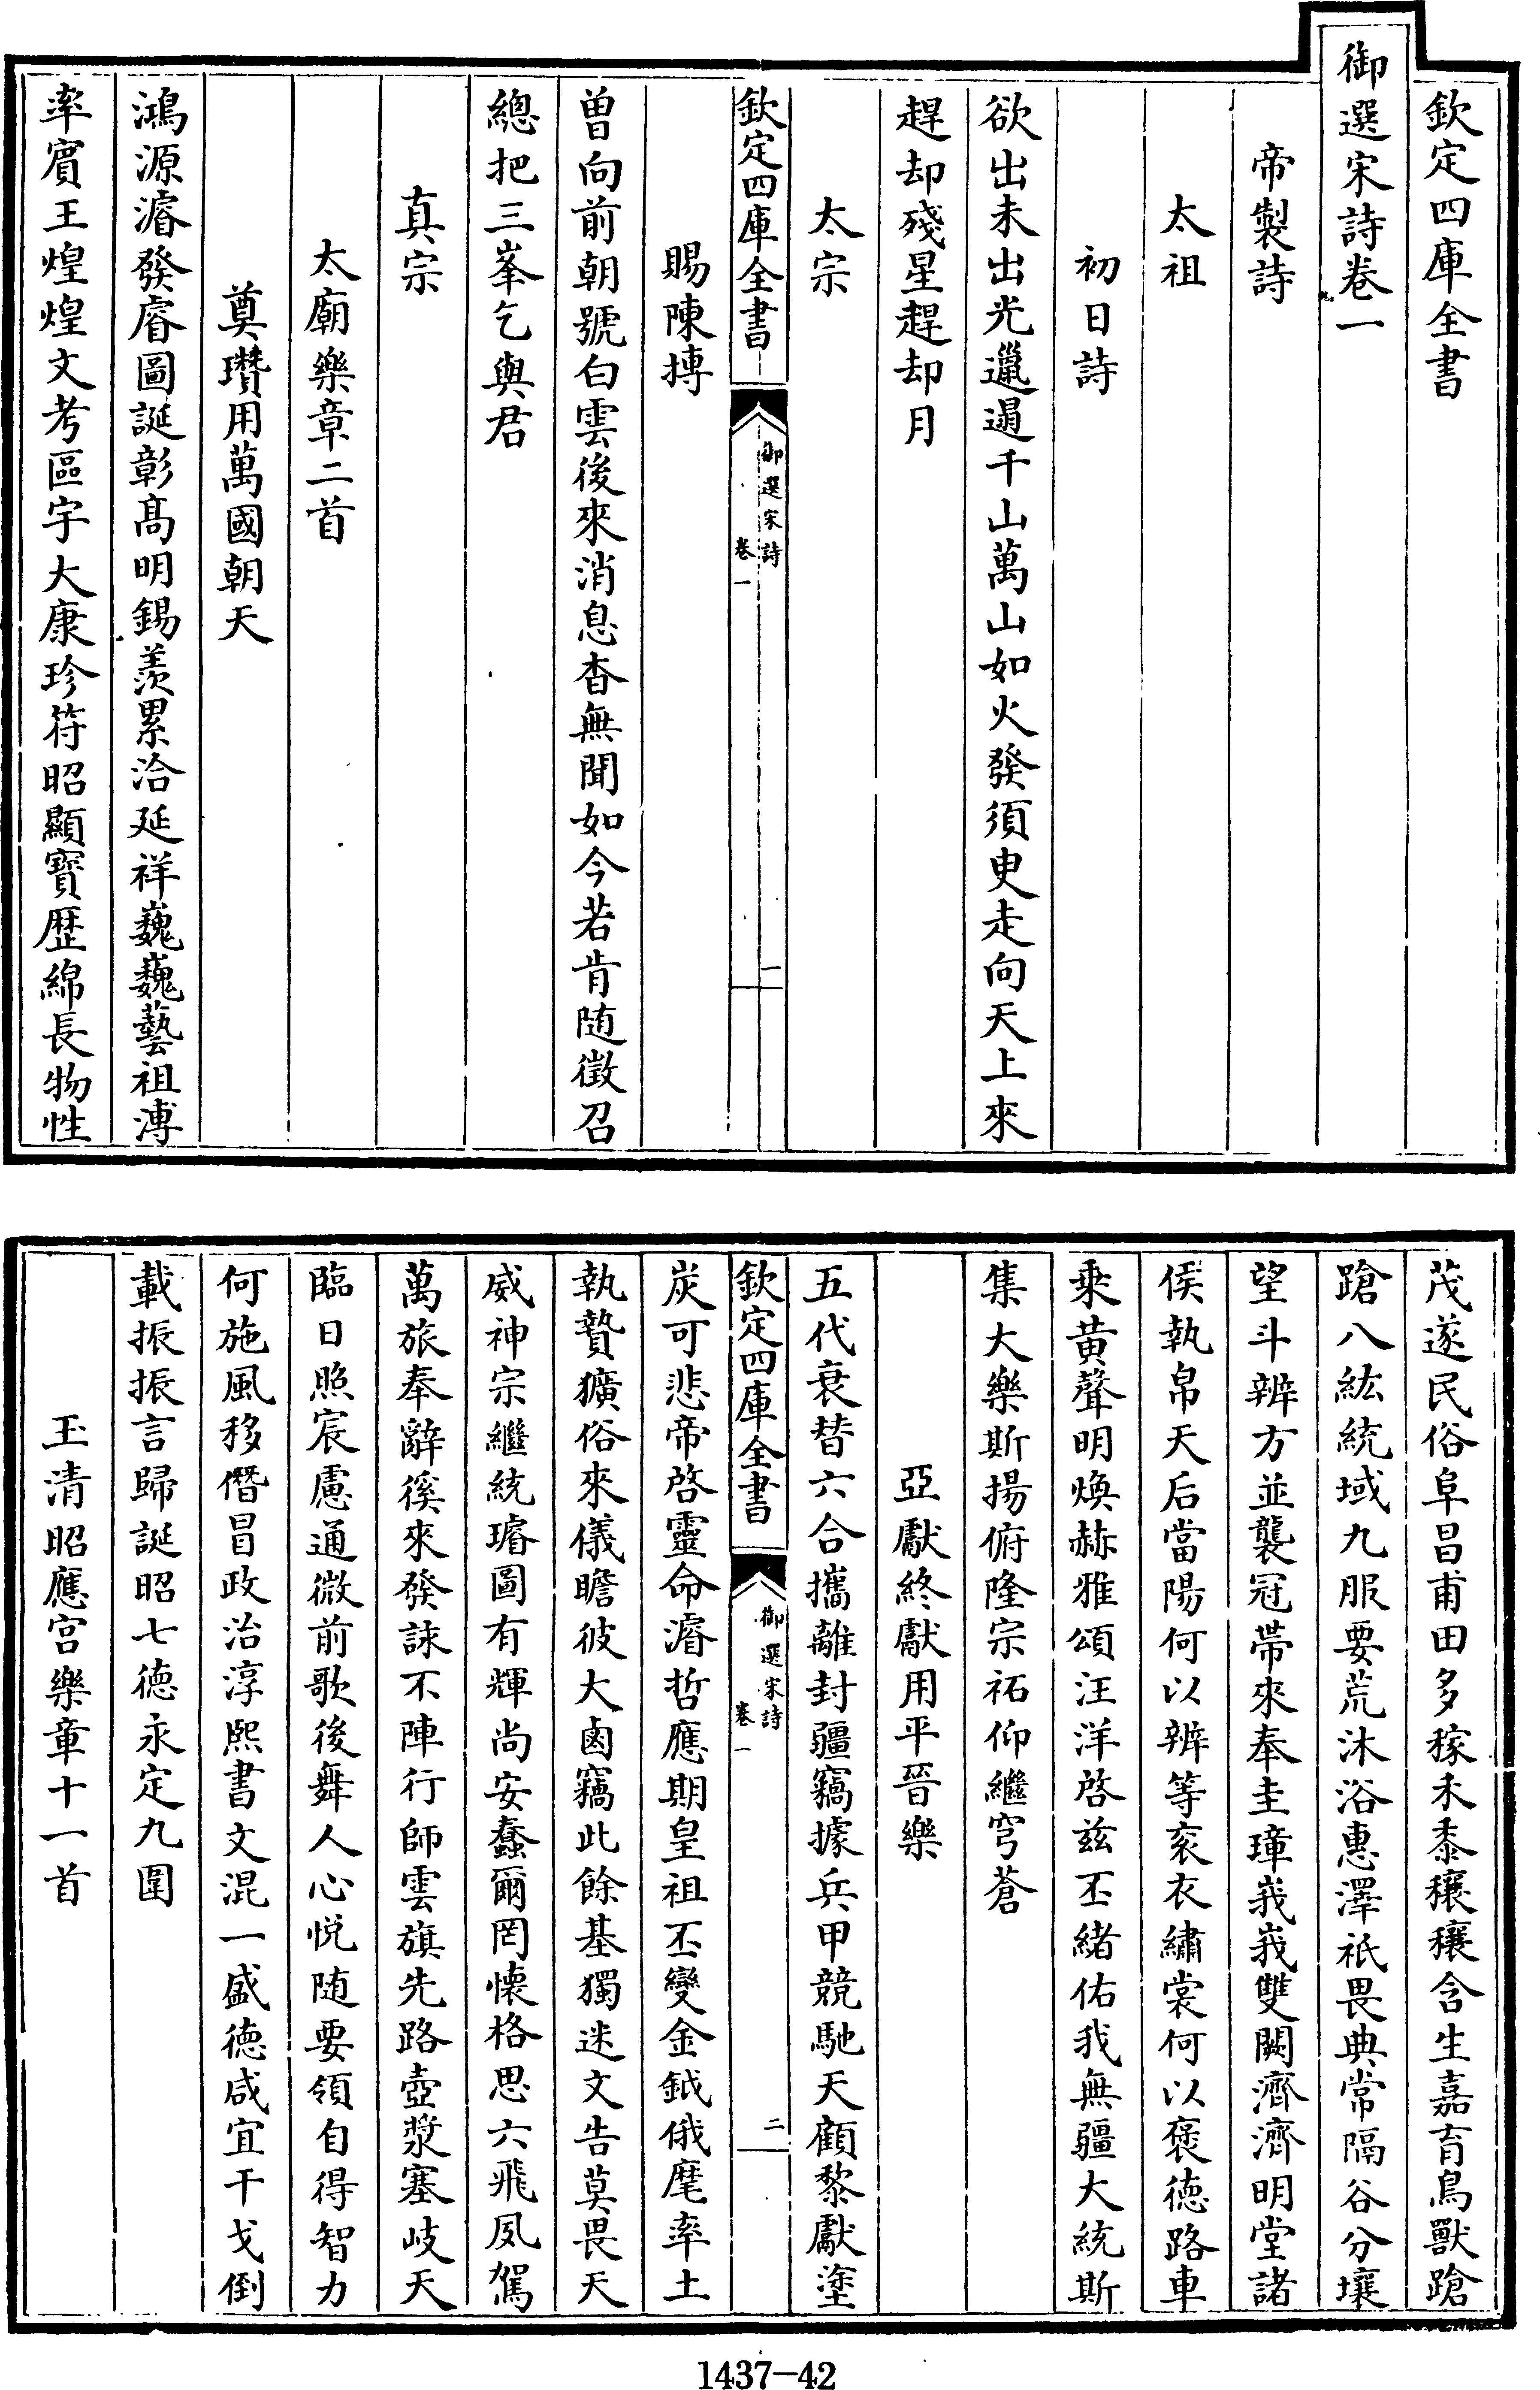 欽定四庫全書
御選宋詩卷一
帝製詩
太祖
初日詩
欲出未出光邋遢千山萬山如火發須臾走向天上來
趕却殘星趕却月
太宗
欽定四庫全書
御選宋詩
卷一
一
賜陳摶
曾向前朝號白雲後來消息杳無聞如今若肯随徵召
總把三峯乞與君
真宗
太廟樂章二首
奠瓚用萬國朝天
鴻源濬發睿圖誕彰髙明錫羨累洽延祥巍巍藝祖溥
率賓王煌煌文考區宇大康珍符昭顯寶歴綿長物性
茂遂民俗阜昌甫田多稼禾黍穰穰含生嘉育鳥獸蹌
蹌八紘統域九服要荒沐浴惠澤祇畏典常隔谷分壤
望斗辨方並襲冠帶來奉圭璋峩峩雙闕濟濟明堂諸
侯執帛天后當陽何以辨等衮衣繡裳何以褒徳路車
乗黄聲明煥赫雅頌汪洋啓兹丕緒佑我無疆大統斯
集大樂斯揚俯隆宗祏仰繼穹蒼
亞獻終獻用平晉樂
五代衰替六合攜離封疆竊據兵甲競馳天顧黎獻塗
欽定四庫全書
御選宋詩
卷一
二
炭可悲帝啓靈命濬哲應期皇祖丕變金鉞俄麾率土
執贄獷俗來儀瞻彼大鹵竊此餘基獨迷文告莫畏天
威神宗繼統璿圖有輝尚安蠢爾罔懐格思六飛夙駕
萬旅奉辭徯來發詠不陣行師雲旗先路壺漿塞岐天
臨日照宸慮通微前歌後舞人心悦随要領自得智力
何施風移僭冒政治淳熙書文混一盛徳咸宜干戈倒
載振振言歸誕昭七徳永定九圍
玉清昭應宫樂章十一首
1437-42